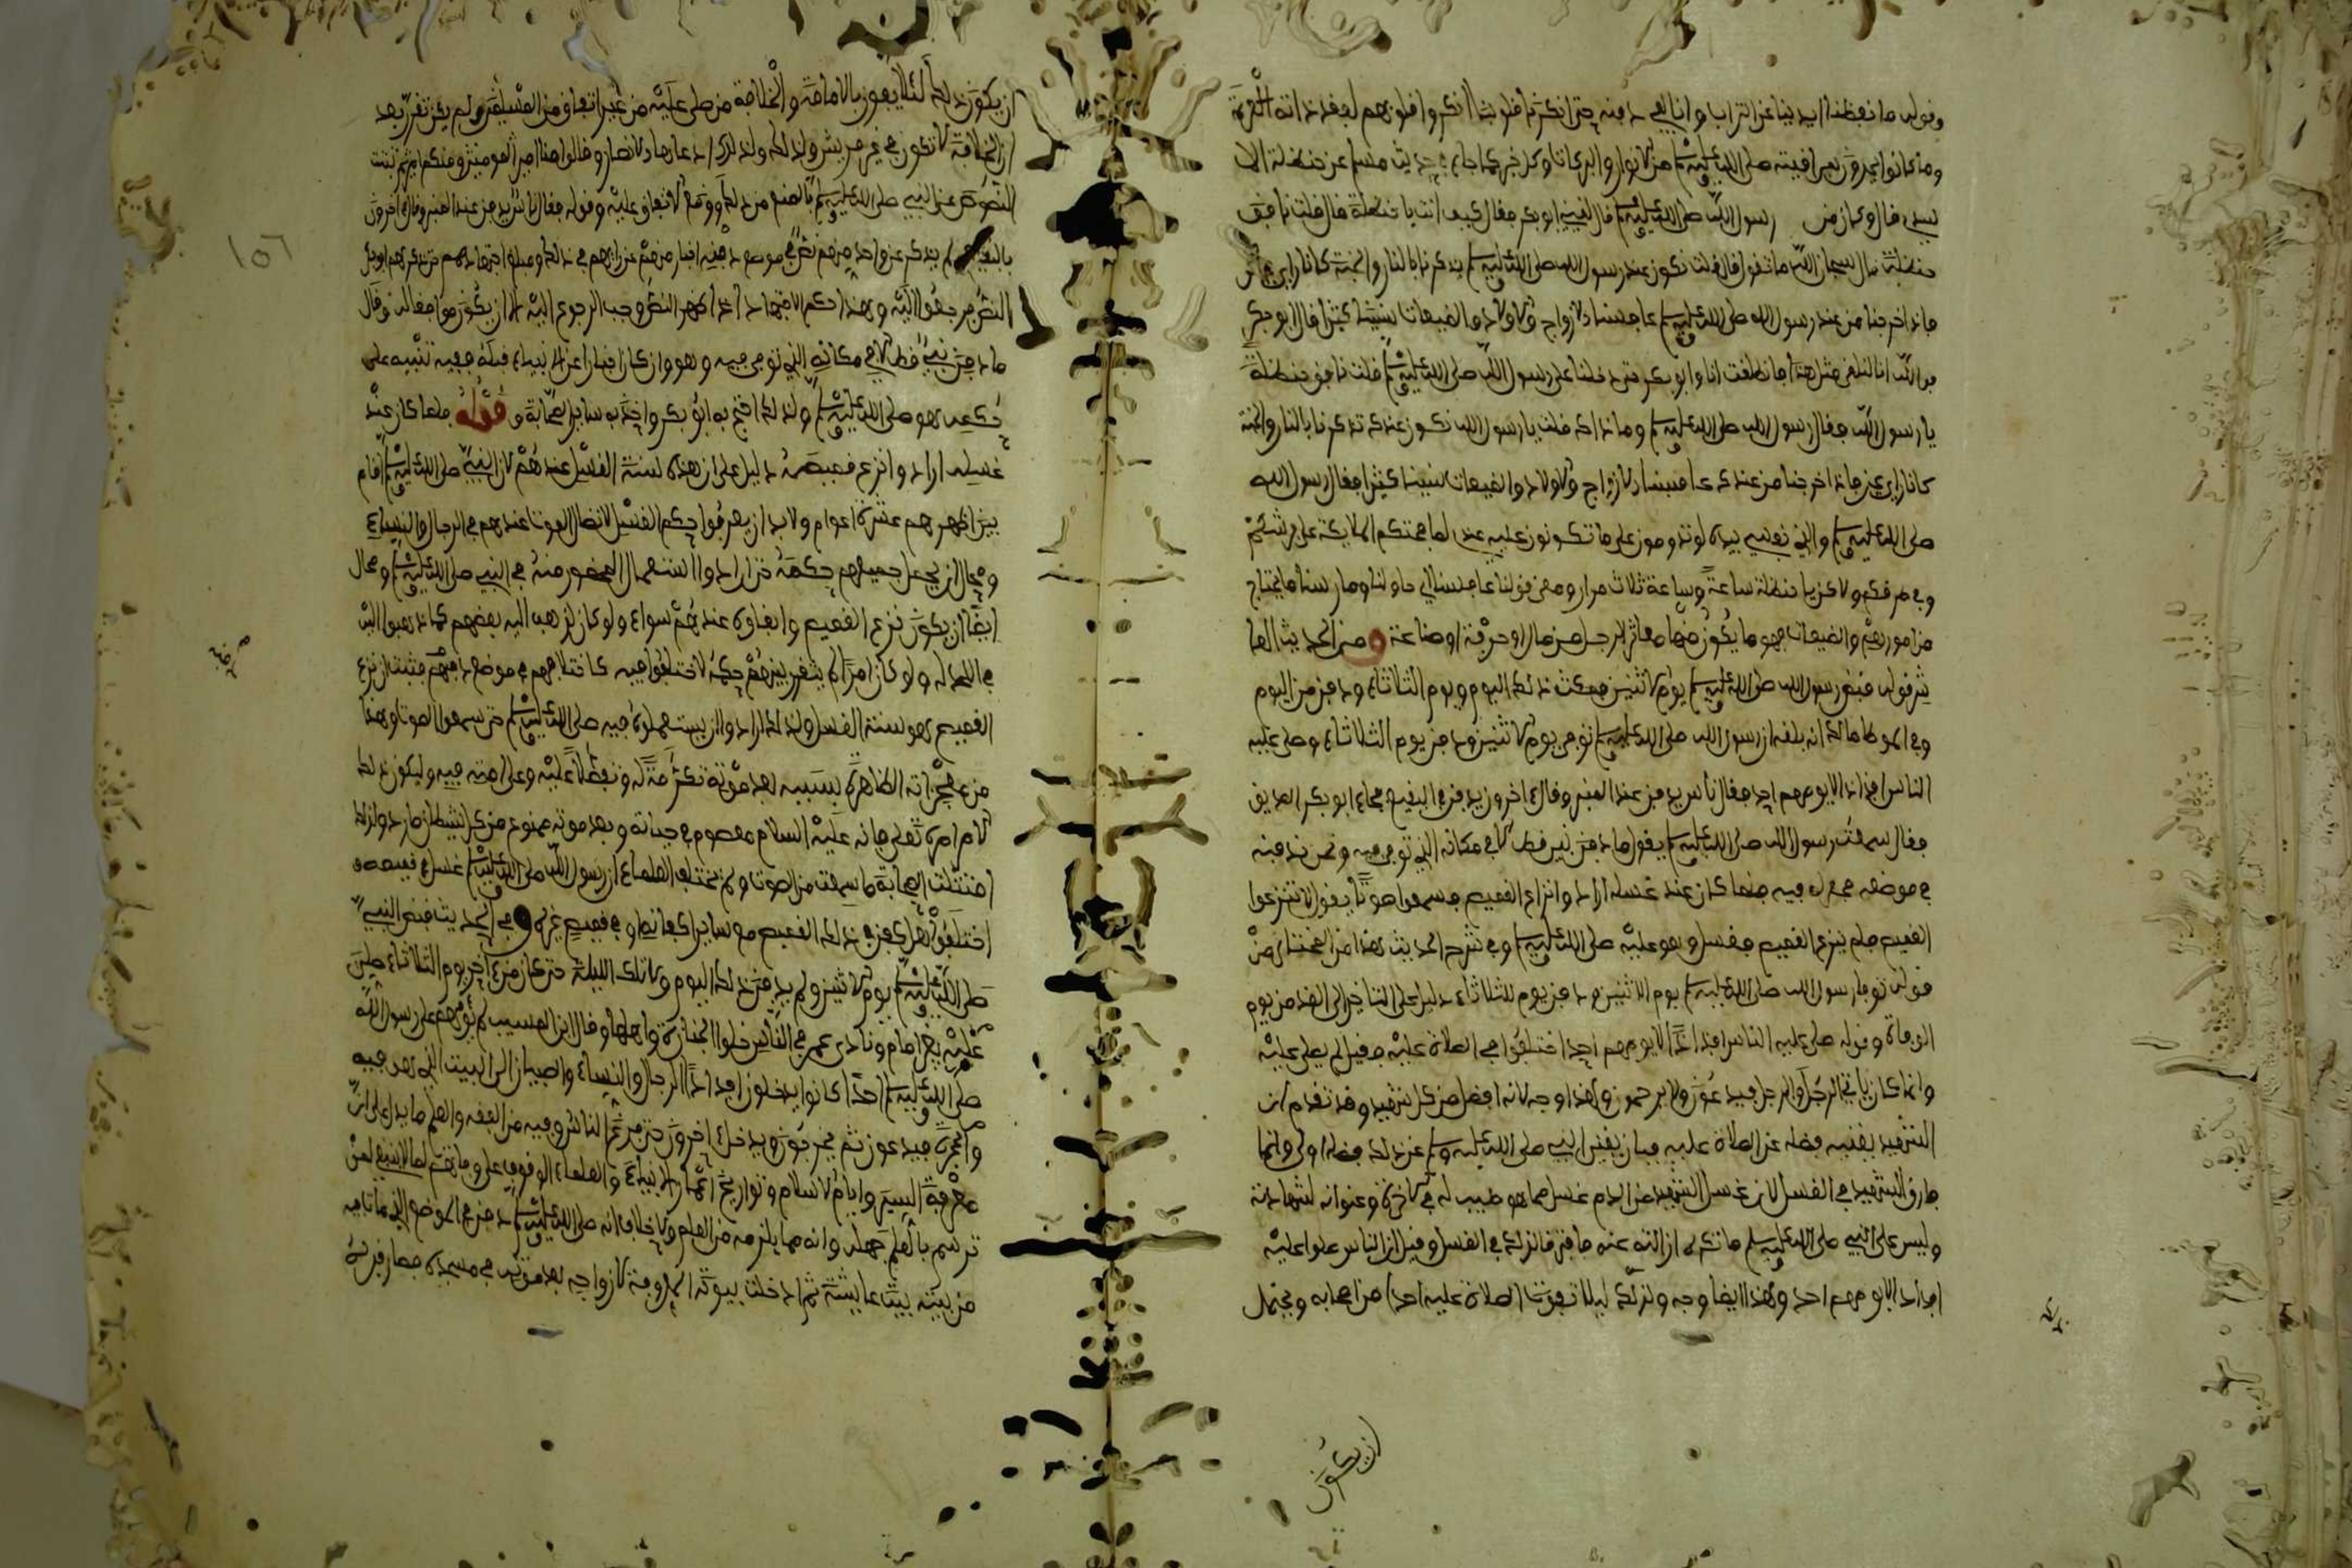 وقوله ما نفضنا ايدينا عن التراب وانا لفي دفنه حتى انكرنا قلوبنا انكروا قلوبهم لفقد ذاته
وما كانوا يجدون بمرافبته صلى الله عليه وسلم من الانوار والبركات وكل خير كما جاء في حديث مسلم عن حنظلة الا
سيدي قال وكان من رسول الله صلى الله عليه وسلم قال لقيني ابو بكر فقال كيف انت يا حنظلة قال قلت نافق
حنظلة قال سبحان الله ما تقول قال قلت نكون عند رسول الله صلى الله عليه وسلم يذكرنا بالنار والجنة كانا راي عين
فاذا خرجنا من عند رسول الله صلى الله عليه وسلم عافسنا الازواج والاولاد والضيعات نسينا كثيرا قال ابو بكر
فوالله انا لنلقى مثل هذا فانطلقت انا وابو بكر حتى دخلنا على رسول الله صلى الله عليه وسلم قلت نافق حنظلة
يا رسول الله فقال رسول الله صلى الله عليه وسلم وما ذاك قلت يا رسول الله نكون عندك تذكرنا بالنار والجنة
كانا راي عين فاذا خرجنا من عندك عافسنا الازواج والاولاد والضيعات نسينا كثيرا فقال رسول الله
صلى الله عليه وسلم والذي نفسي بيده لو تدومون على ما تكونون عليه عندي لصافحتكم الملايكة على فرشكم
وفي طرقكم ولاكن يا حنظلة ساعة وساعة ثلاث مرار ومعنى قولنا عافسنا اي حاولنا ومارسنا ما يحتاج
من امورهم والضيعات فهو ما يكون منها معاش الرجل من مال او حرفة او صناعة ومن الحديث العا
شر قوله قبض رسول الله صلى الله عليه وسلم يوم الاثنين فمكث ذلك اليوم ويوم الثلاثاء ودفن من اليوم
وفي الموطا مالك انه بلغه ان رسول الله صلى الله عليه وسلم توفي يوم الاثنين ودفن يوم الثلاثاء وصلى عليه
الناس افذاذا لا يومهم احد فقال ناس يدفن عند المنبر وقال اخرون يدفن في البقيع فجاء ابو بكر الصديق
فقال سمعت رسول الله صلى الله عليه وسلم يقول ما دفن نبي قط الا في مكانه الذي توفي فيه ونحن ندفنه
في موضعه فحفر له فيه فلما كان عند غسله ارادوا نزع القميص فسمعوا صوتا يقول لا تنزعوا
القميص فلم ينزع القميص فغسل وهو عليه صلى الله عليه وسلم وفي شرح الحديث هذا من المختار من
قوله توفي رسول الله صلى الله عليه وسلم يوم الاثنين ودفن يوم الثلاثاء دليل على التاخير الى الغد من يوم
الوفاة وقوله صلى عليه الناس افذاذا لا يومهم احد اختلفوا في الصلاة عليه فقيل لم يصل عليه
وانما كان ياتي الرجل والرجل فيدعون ولا يرحمون ولهذا وجه لانه افضل من كل شهيد وقد تقدم ان
الشهيد يغنيه فضله عن الصلاة عليه فبان يغني النبي صلى الله عليه وسلم عن ذلك فضله اولى وانما
فارق الشهيد في الغسل لان غسل الشهيد من الدم غسل مما هو طيب له في الاخرة وعنوان لشهادته
وليس على النبي صلى الله عليه وسلم ما تكره ازالته عنه فافترقا لذلك في الغسل وقيل ان الناس صلوا عليه
افذاذا لا يومهم احد ولهذا ايضا وجه وذلك ليلا تفوت الصلاة عليه احدا من اصحابه ويحتمل
ان يكون
ان يكون ذلك لئلا يفوز بالامامة والخلافة من صلى عليه من غير اتفاق من المسلمين ولم يكن تقرر بعد
ان الخلافة لا تكون في غير قريش ولذلك ولذلك ادعاها الانصار وقالوا منا امير المومنين ومنكم امير ثم ثبتت
النصوص عن النبي صلى الله عليه وسلم بالمنع من ذلك ووقع الاتفاق عليه وقوله فقال ناس يدفن عند المنبر وقال اخرون
بالبقيع لم يذكر عن واحد منهم نص في موضع دفنه اخبار منهم عن رايهم في ذلك ومبلغ اجتهادهم حتى ذكرهم ابو بكر
النص فرجعوا اليه وهذا حكم الاجتهاد اذا ظهر النص وجب الرجوع اليه الا ان يكون موافقا له وقال
ما دفن نبي قط الا في مكانه الذي توفي فيه وهو وان كان اخبارا عن الانبياء قبله ففيه تنبيه على
حكمه هو صلى الله عليه وسلم ولذلك احتج به ابو بكر واخذ به ساير الصحابة وقوله فلما كان عند
غسله ارادوا نزع قميصه دليل على ان هذه لسنة الغسل عندهم لان النبي صلى الله عليه وسلم اقام
بين اظهرهم عشرة اعوام ولا بد ان يعرفوا حكم الغسل لاتصال الموت عندهم في الرجال والنساء
ومحال ان يجهل جميعهم حكمه حتى ارادوا استعمال المحضور منه في النبي صلى الله عليه وسلم ومحال
ايضا ان يكون نزع القميص وابقاوه عندهم سواء ولو كان لذهب اليه بعضهم كما ذهبوا اليه
في اللحد له ولو كان امرا لم يتقرر بينهم حكمه لاختلفوا فيه كاختلافهم في موضع دفنهم فثبت ان نزع
القميص هو سنة الغسل ولذلك ارادوا ان يستعملوه فيه صلى الله عليه وسلم حتى سمعوا الصوت وهذا
من معجزاته الظاهرة بسببه بعد موته تكرمة له وتفضلا عليه وعلى امته فيه وليكون ذلك
الامر امره تعالى فانه عليه السلام معصوم في حياته وبعد موته ممنوع من كل شيطان مارد ولذلك
امتثلت الصحابة ما سمعت من الصوت ولم تختلف العلماء ان رسول الله صلى الله عليه وسلم غسل في قميصه و
اختلفوا هل كفن في ذلك القميص مع ساير اكفانه او في قميص غيره وفي الحديث قبض النبي
صلى الله عليه وسلم يوم الاثنين ولم يدفن ذلك اليوم ولا تلك الليلة حتى كان من اخر يوم الثلاثاء صلى
عليه بغير امام ونادى عمر في الناس خلوا الجنازة واهلها وقال ابن المسيب لم يومهم على رسول الله
صلى الله عليه وسلم احد كانوا يدخلون افذاذا الرجال والنساء والصبيان الى البيت الذي هو فيه
والحجرة فيدعون ثم يخرجون ويدخل اخرون حتى فرغ الناس وفيه من الفقه والعلم ما يدل على ان
معرفة السير وايام الاسلام وتواريخ اعمار الانبياء والعلماء الوقوف على وفاتهم لما لا ينبغي لمن
ترسم بالعلم جهله وانه مما يلزمه من العلم ولا خلاف انه صلى الله عليه وسلم دفن في الموضع الذي مات فيه
من بيته بيت عايشة ثم ادخلت بيوته المعروفة لازواجه بعد موته في مسجده فصار قبره
١٥٦